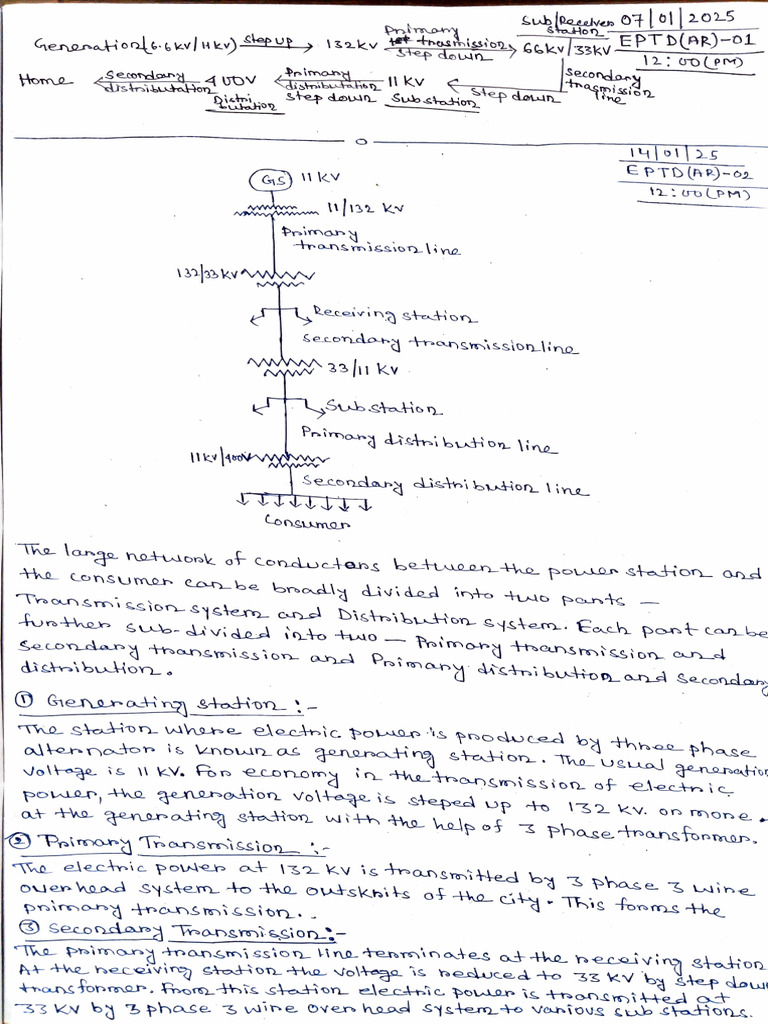 07/01/2025
EPTD(AR)-01
12:00(PM)
Generation(6.6kV/11kV) Step up 132kV Primary trasmission Step down Sub/Receiver station 66kV/33kV
Secondary trasmission line
Home Secondary distributation 400V Primary distributation Step down 11kV Substation Step down
Distributation
14/01/25
EPTD(AR)-02
12:00(PM)
GS 11KV
11/132 KV
Primary
transmission line
132/33KV
Receiving station
Secondary transmission line
33/11 KV
Sub station
Primary distribution line
11KV/400V
Secondary distribution line
Consumer
The large network of conductors between the power station and
the consumer can be broadly divided into two parts —
Transmission system and Distribution system. Each part can be
further sub-divided into two — Primary transmission and
secondary transmission and Primary distribution and secondary
distribution.
① Generating station :-
The station where electric power is produced by three phase
alternator is known as generating station. The usual generation
voltage is 11 KV. For economy in the transmission of electric
power, the generation voltage is steped up to 132 KV. or more.
at the generating station with the help of 3 phase transformer.
② Primary Transmission :-
The electric power at 132 KV is transmitted by 3 phase 3 wire
overhead system to the outskrits of the city. This forms the
primary transmission..
③ Secondary Transmission:-
The primary transmission line terminates at the receiving station
At the receiving station the voltage is reduced to 33 KV by step down
transformer. From this station electric power is transmitted at
33 KV by 3 phase 3 wire overhead system to various sub stations.